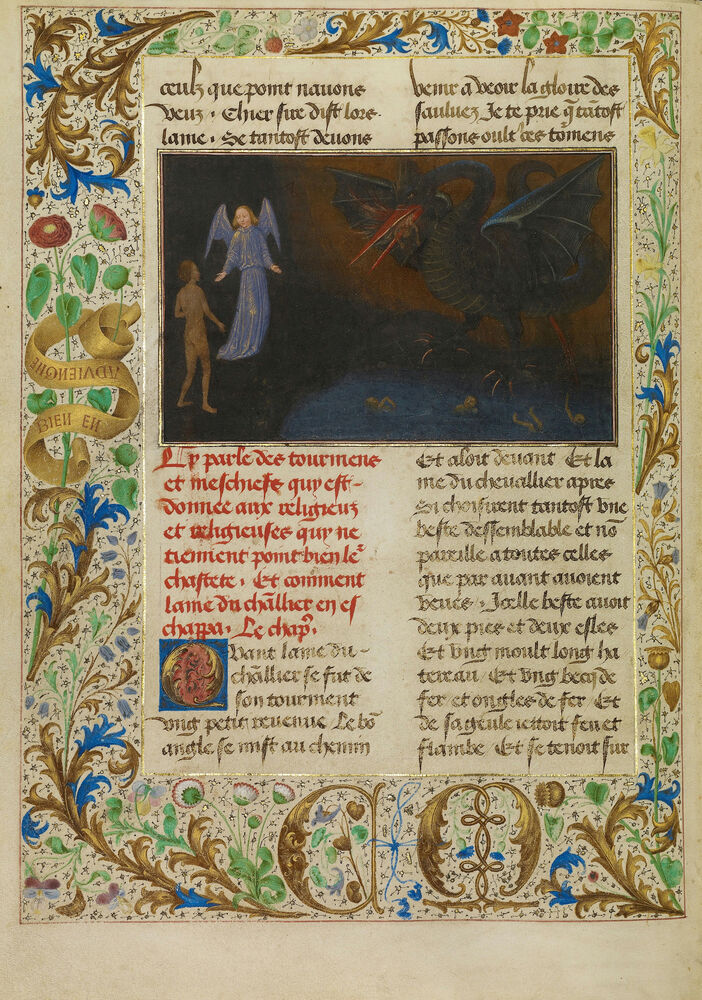 ceulz que point nauons
veuz . Chier sire dist lors
lame . Se tantost deuons
venir a veoir la gloire des
sauluez Je te prie q̄ tātost
passons oult ces tormens
Cy parle des tourmens
et meschiefs quy est
donnee aux religieux
et religieuses quy ne
tiennent point bien le
chastete . Et comment
lame du chāllier en es
chappa . Le chapr̄.
Quant lame du
chāllier se fut de
son tourment
vng petit reuenue Le bō
angle se mist au chemin
Et aloit deuant Et la
me du cheuallier apres
Si choisirent tantost vne
beste dessemblable et nō
pareille a toutes celles
que par auant auoient
veues . Icelle beste auoit
deux pies et deux esles
Et vng moult long ha
tereau Et vng becq de
fer et ongles de fer Et
de sa geule iettoit feu et
flambe Et se tenoit sur
ADVIENGNE
BIEN EN
C M